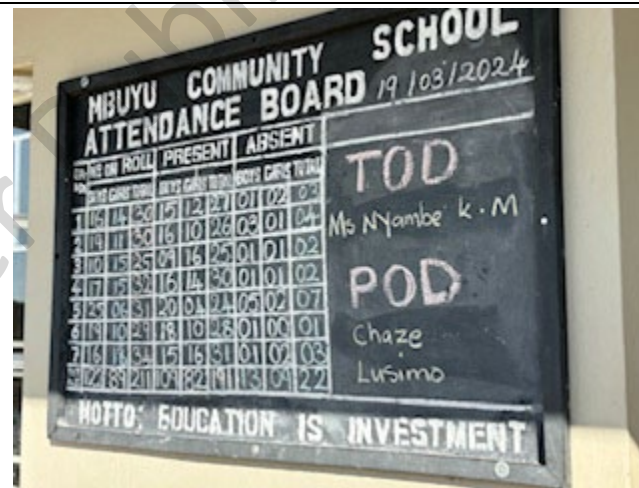 MBUYU COMMUNITY SCHOOL
ATTENDANCE BOARD 19/03/2024
NO ON ROLL PRESENT ABSENT
BOYS GIRLS TOTAL BOYS GIRLS TOTAL BOYS GIRLS TOTAL
1 16 14 30 15 12 27 01 02 03
2 19 11 30 16 10 26 03 01 04
3 10 15 25 09 16 25 01 01 02
4 17 15 32 16 14 30 01 01 02
5 25 06 31 20 04 24 05 02 07
6 19 10 29 18 10 28 01 00 01
7 16 18 34 15 16 31 01 02 03
122 89 211 109 82 191 13 09 22
TOD
Ms Nyambe K.M
POD
Chaze
Lusimo
MOTTO: EDUCATION IS INVESTMENT